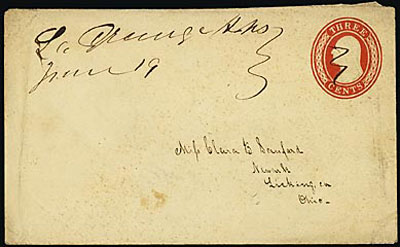 La Grange Arks
June 19
THREE
CENTS
Miss Clara B Sanford
Newark
Licking, co
Ohio.